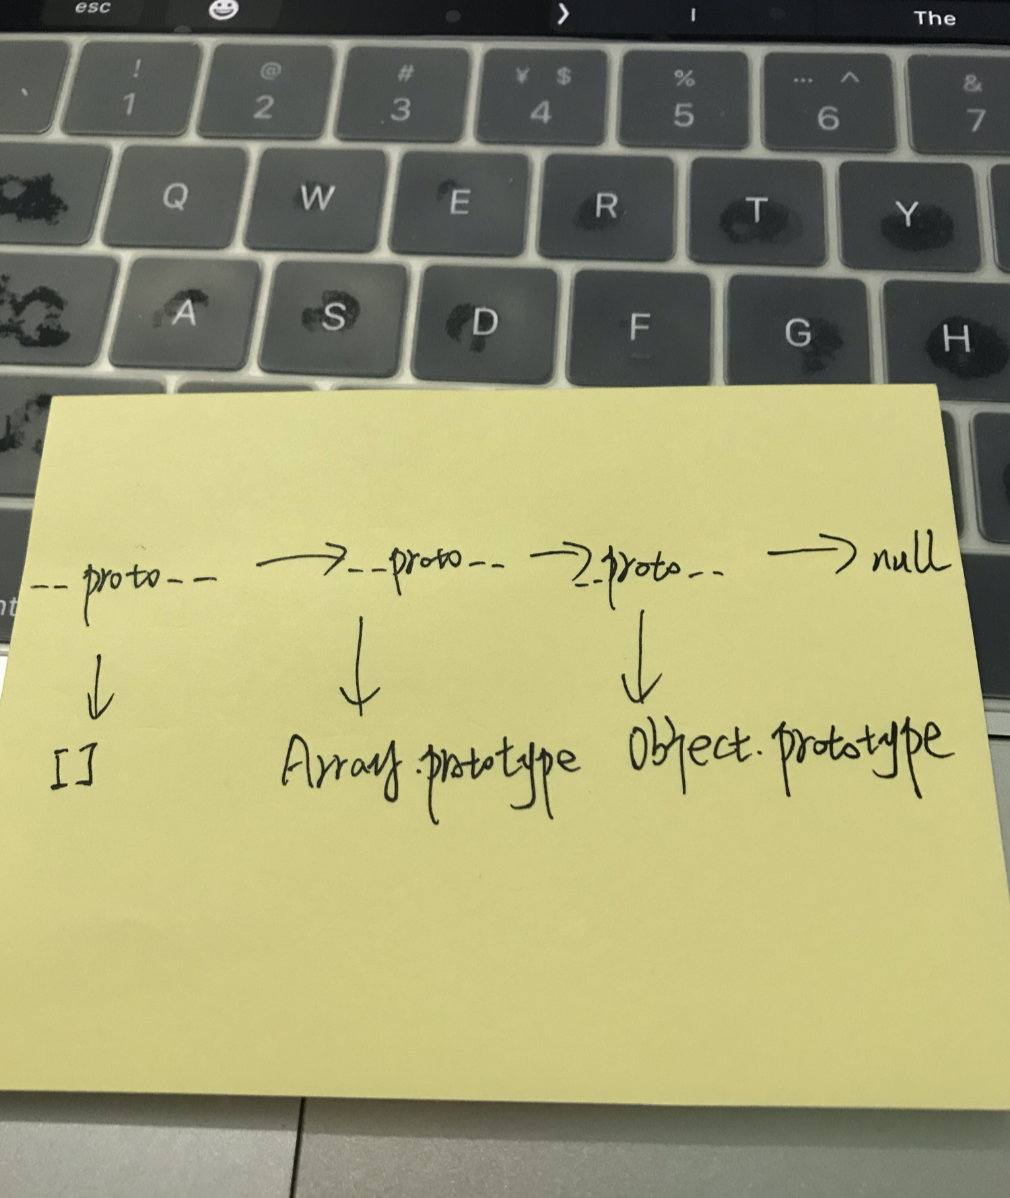 esc The
! @ # ¥ $ % … ^ &
` 1 2 3 4 5 6 7
Q W E R T Y
A S D F G H
-- proto -- → -- proto -- → -- proto -- → null
↓ ↓ ↓
[] Array.prototype Object.prototype